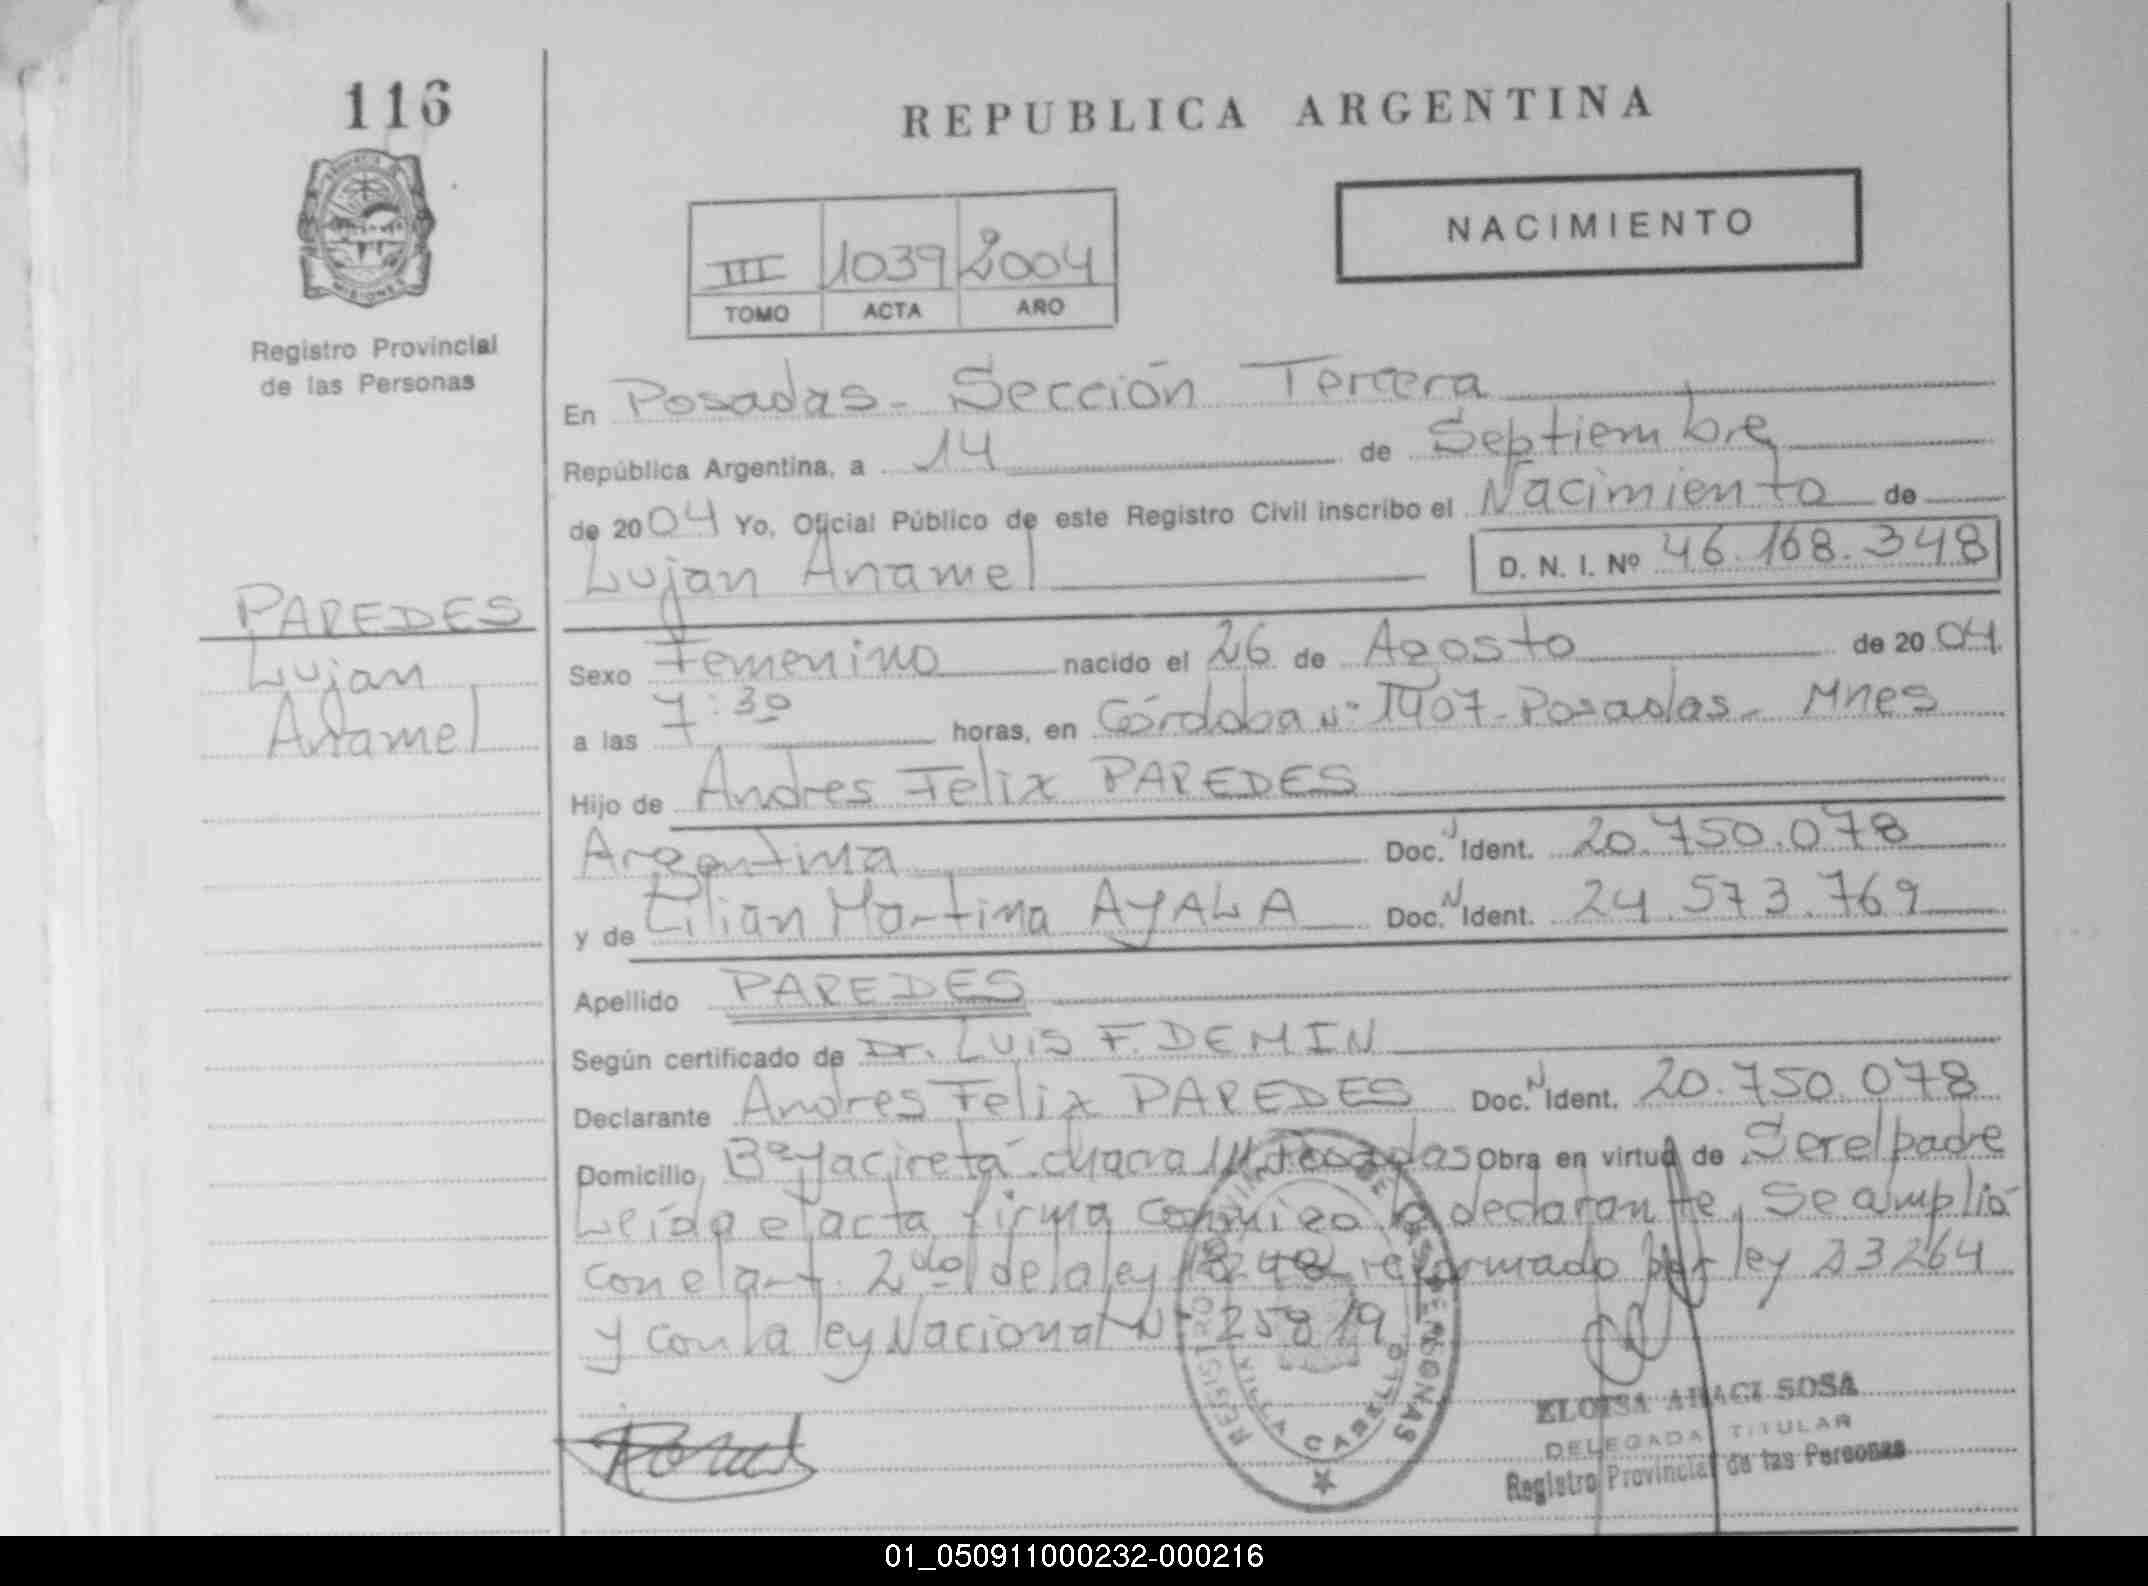 116
REPUBLICA ARGENTINA
NACIMIENTO
III 1039 2004
TOMO ACTA AÑO
MISIONES
Registro Provincial
de las Personas
En Posadas - Sección Tercera
República Argentina, a 14 de Septiembre
de 2004 Yo, Oficial Público de este Registro Civil inscribo el Nacimiento de
Lujan Anamel D. N. I. Nº 46.168.348
PAREDES
Lujan
Anamel
Sexo Femenino nacido el 26 de Agosto de 2004.
a las 7:30 horas, en Córdoba Nº 1907 - Posadas - Mnes
Hijo de Andres Felix PAREDES
Argentina Doc. N Ident. 20.750.078
y de Lilian Martina AYALA Doc. N Ident. 24.573.769
Apellido PAREDES
Según certificado de Dr. LUIS F. DEMIN
Declarante Andres Felix PAREDES Doc. N Ident. 20.750.078
Domicilio Bº Yaciretá chacra Posadas Obra en virtud de Ser el padre
Leída el acta firma conmigo la declarante, Se amplió
con el art. 2do de la ley 18248 reformado por ley 23264
y con la ley Nacional Nº 25819
REGISTRO PROVINCIAL DE LAS PERSONAS
VILLA CABELLO
ELOISA ARACI SOSA
DELEGADA TITULAR
Registro Provincial de las Personas
01_050911000232-000216